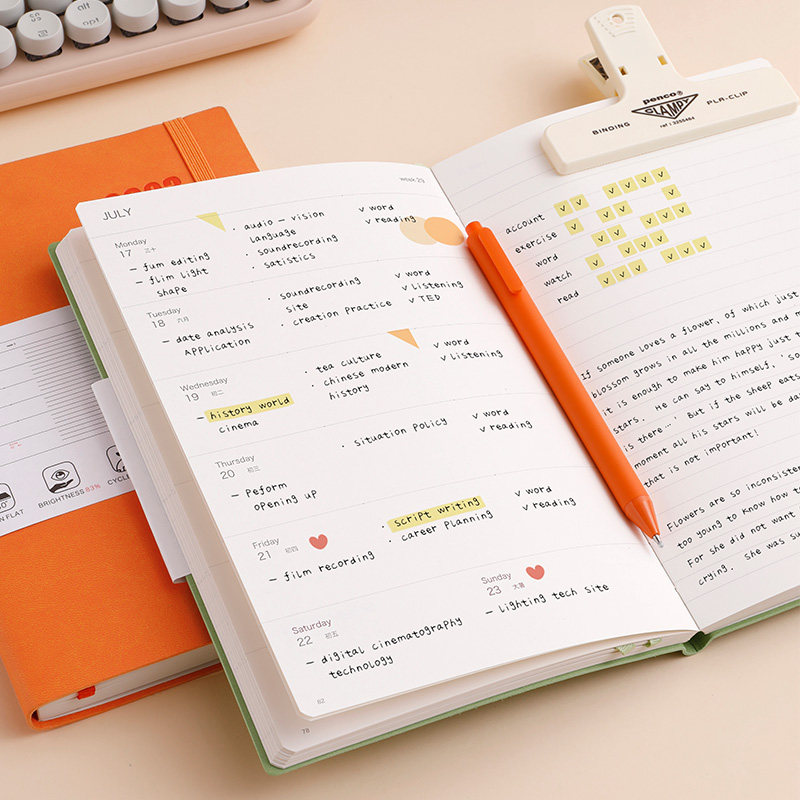 alt
opt
JULY
week-29
Monday
17 三十
- fum editing
- flim light
shape
• audio - vision
language
• soundrecording
• satistics
✓ word
✓ reading
Tuesday
18 六月
- date analysis
APPlication
• soundrecording
site
• creation practice
✓ word
✓ listening
✓ TED
Wednesday
19 初二
- history world
cinema
• tea culture
• chinese modern
history
✓ word
✓ listening
Thursday
20 初三
- Peform
opening up
• situation policy
✓ word
✓ reading
Friday
21 初四
- film recording
• script writing
• career planning
✓ word
✓ reading
Saturday
22 初五
- digital cinematography
technology
Sunday
23 大暑
- lighting tech site
82
78
penco®
CLAMPY
BINDING PLA-CLIP
account ✓ ✓ ✓ ✓ ✓ ✓
exercise ✓ ✓ ✓ ✓
word ✓ ✓ ✓ ✓
watch ✓ ✓ ✓ ✓
read ✓ ✓ ✓ ✓ ✓ ✓
If someone loves a flower, of which just
blossom grows in all the millions and
it is enough to make him happy just
stars. He can say to himself,
is there...' But if the sheep eats
moment all his stars will be
that is not important!
Flowers are so inconsistent
too young to know how
For she did not want
crying. she was
N FLAT
BRIGHTNESS 83%
CYCL